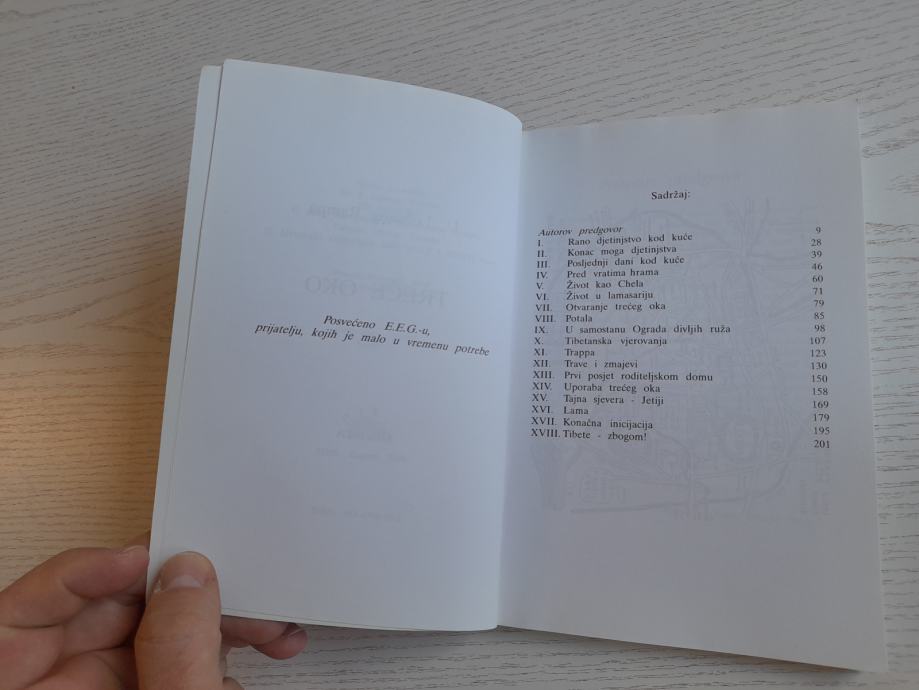 Posvećeno E.E.G.-u,
prijatelju, kojih je malo u vremenu potrebe
Sadržaj:
Autorov predgovor
I. Rano djetinjstvo kod kuće 9
II. Konac moga djetinjstva 28
III. Posljednji dani kod kuće 39
IV. Pred vratima hrama 46
V. Život kao Chela 60
VI. Život u lamasariju 71
VII. Otvaranje trećeg oka 79
VIII. Potala 85
IX. U samostanu Ograda divljih ruža 98
X. Tibetanska vjerovanja 107
XI. Trappa 123
XII. Trave i zmajevi 130
XIII. Prvi posjet roditeljskom domu 150
XIV. Uporaba trećeg oka 158
XV. Tajna sjevera - Jetiji 169
XVI. Lama 179
XVII. Konačna inicijacija 195
XVIII. Tibete - zbogom! 201